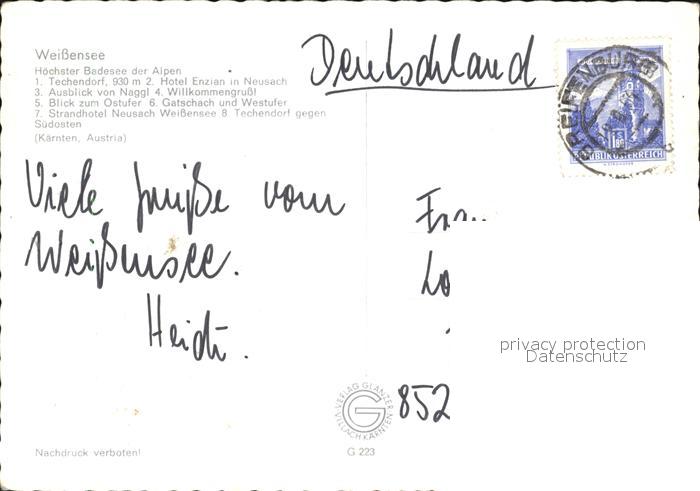 Weißensee
Höchster Badesee der Alpen
1. Techendorf, 930 m 2. Hotel Enzian in Neusach
3. Ausblick von Naggl 4. Willkommengruß!
5. Blick zum Ostufer 6. Gatschach und Westufer
7. Strandhotel Neusach Weißensee 8. Techendorf gegen
Südosten
(Kärnten, Austria)
Deutschland
GREIFENBURG
S 1.80
REPUBLIK ÖSTERREICH
Viele Grüße vom
Weißensee.
Heidi.
Frau
Lo
852
privacy protection
Datenschutz
VERLAG GLANZER
VILLACH KÄRNTEN
G
G 223
Nachdruck verboten!